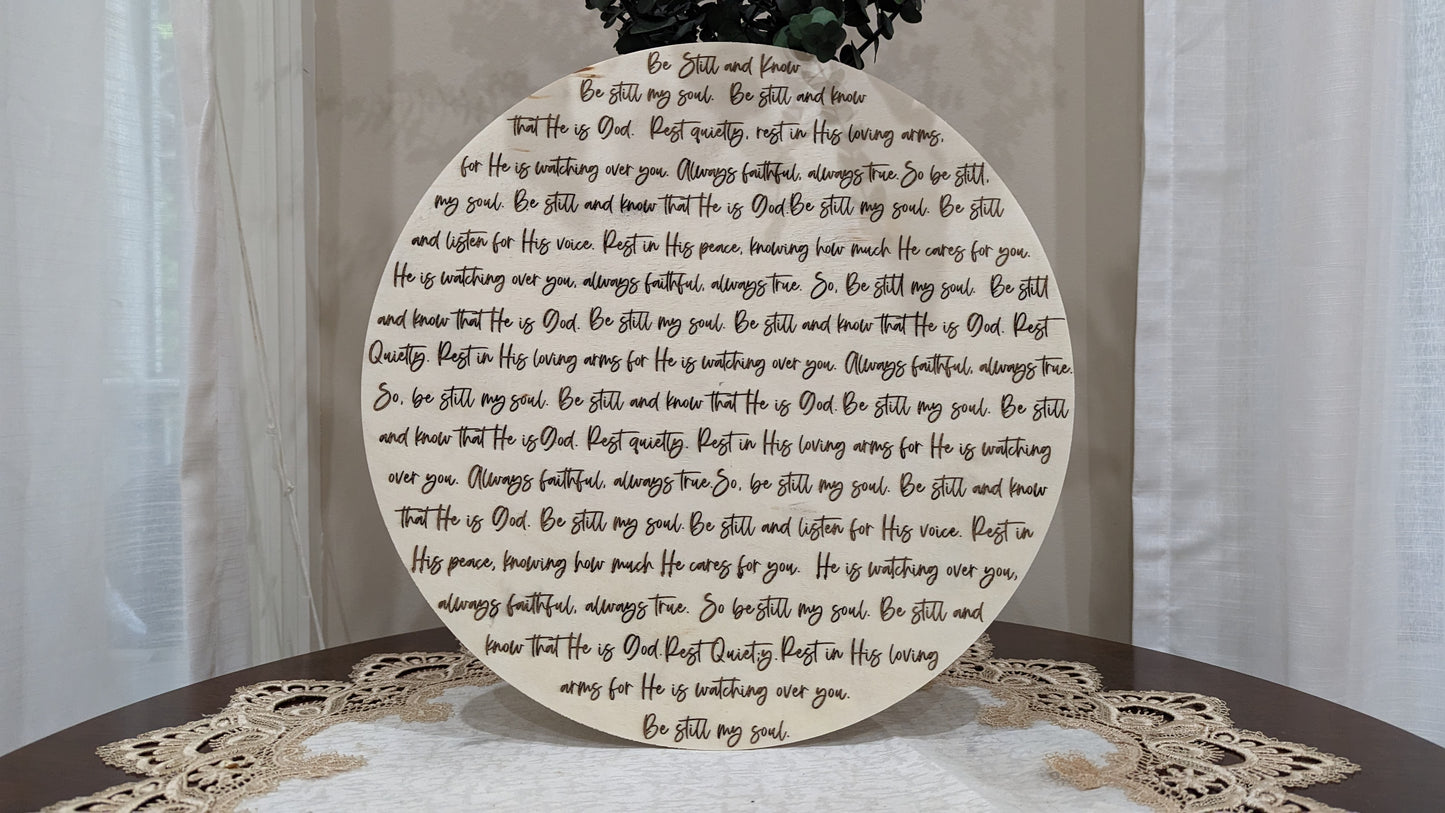 Be Still and Know
Be still my soul. Be still and know
that He is God. Rest quietly, rest in His loving arms,
for He is watching over you. Always faithful, always true. So be still,
my soul. Be still and know that He is God. Be still my soul. Be still
and listen for His voice. Rest in His peace, knowing how much He cares for you.
He is watching over you, always faithful, always true. So, Be still my soul. Be still
and know that He is God. Be still my soul. Be still and know that He is God. Rest
Quietly. Rest in His loving arms for He is watching over you. Always faithful, always true.
So, be still my soul. Be still and know that He is God. Be still my soul. Be still
and know that He is God. Rest quietly. Rest in His loving arms for He is watching
over you. Always faithful, always true. So, be still my soul. Be still and know
that He is God. Be still my soul. Be still and listen for His voice. Rest in
His peace, knowing how much He cares for you. He is watching over you,
always faithful, always true. So be still my soul. Be still and
know that He is God. Rest Quiet;y. Rest in His loving
arms for He is watching over you.
Be still my soul.